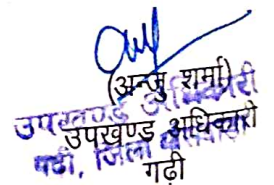 (अन्जु शर्मा)
उपखण्ड अधिकारी
उपखण्ड अधिकारी
गढी, जिला बांसवाड़ा
गढ़ी